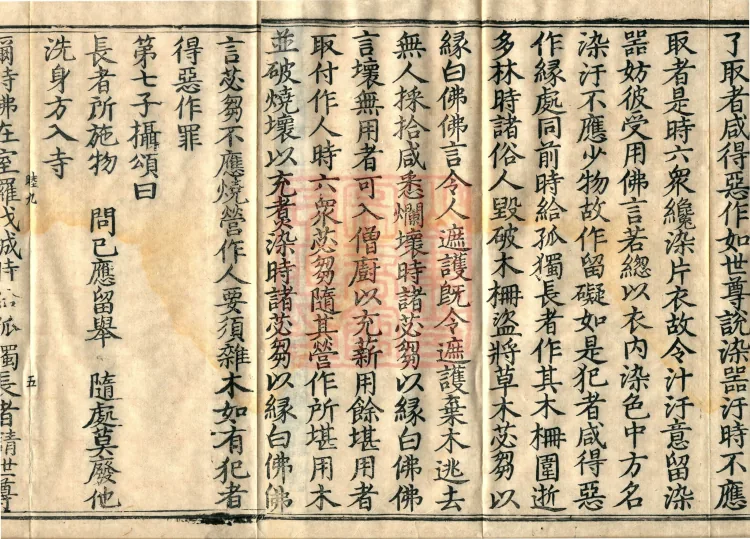 了取者咸得惡作如世尊說染器汙時不應
取者是時六衆纔染片衣故令汁汙意留染
器妨彼受用佛言若緫以衣内染色中方名
染汙不應少物故作留礙如是犯者咸得惡
作緣處同前時給孤獨長者作其木柵圍逝
多林時諸俗人毀破木柵盜將草木苾芻以
緣白佛佛言令人遮護旣令遮護棄木逃去
無人採拾咸悉爛壞時諸苾芻以緣白佛佛
言壞無用者可入僧廚以充薪用餘堪用者
取付作人時六衆苾芻隨其營作所堪用木
並破燒壞以充煑染時諸苾芻以緣白佛佛
言苾芻不應燒營作人要須雜木如有犯者
得惡作罪
第七子攝頌曰
長者所施物　問已應留舉　隨處莫廢他
洗身方入寺
睦九　五
爾時佛在室羅伐城時給孤獨長者請世尊